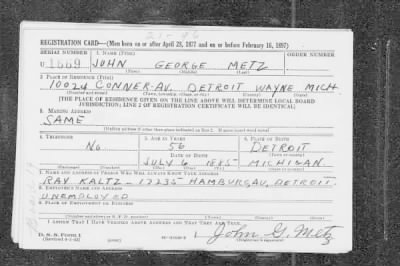 21-46
REGISTRATION CARD—(Men born on or after April 28, 1877 and on or before February 16, 1897)
SERIAL NUMBER 1. NAME (Print) ORDER NUMBER
U 1669 JOHN GEORGE METZ
(First) (Middle) (Last)
2. PLACE OF RESIDENCE (Print)
10024 CONNER-AV. DETROIT WAYNE MICH
(Number and street) (Town, township, village, or city) (County) (State)
[THE PLACE OF RESIDENCE GIVEN ON THE LINE ABOVE WILL DETERMINE LOCAL BOARD
JURISDICTION; LINE 2 OF REGISTRATION CERTIFICATE WILL BE IDENTICAL]
3. MAILING ADDRESS
SAME
[Mailing address if other than place indicated on line 2. If same insert word same]
4. TELEPHONE 5. AGE IN YEARS 6. PLACE OF BIRTH
No 56 DETROIT
DATE OF BIRTH
JULY 6 1885 MICHIGAN
7. NAME AND ADDRESS OF PERSON WHO WILL ALWAYS KNOW YOUR ADDRESS
RAY KALTZ - 17235 HAMBURG AV, DETROIT
8. EMPLOYER'S NAME AND ADDRESS
UNEMPLOYED
9. PLACE OF EMPLOYMENT OR BUSINESS
(Number and street or R. F. D. number) (Town) (County) (State)
I AFFIRM THAT I HAVE VERIFIED ABOVE ANSWERS AND THAT THEY ARE TRUE.
D. S. S. FORM 1
John G. Metz